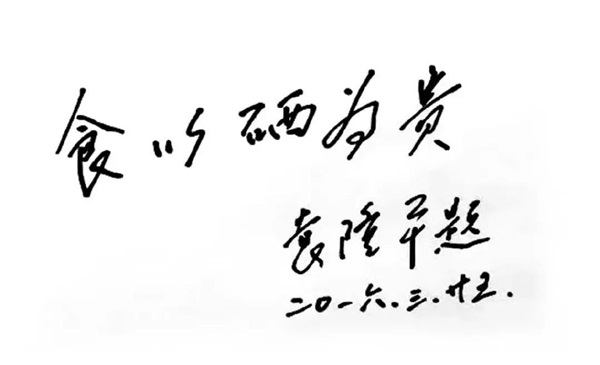 食以硒为贵
袁隆平题
二〇一六.三.廿五.